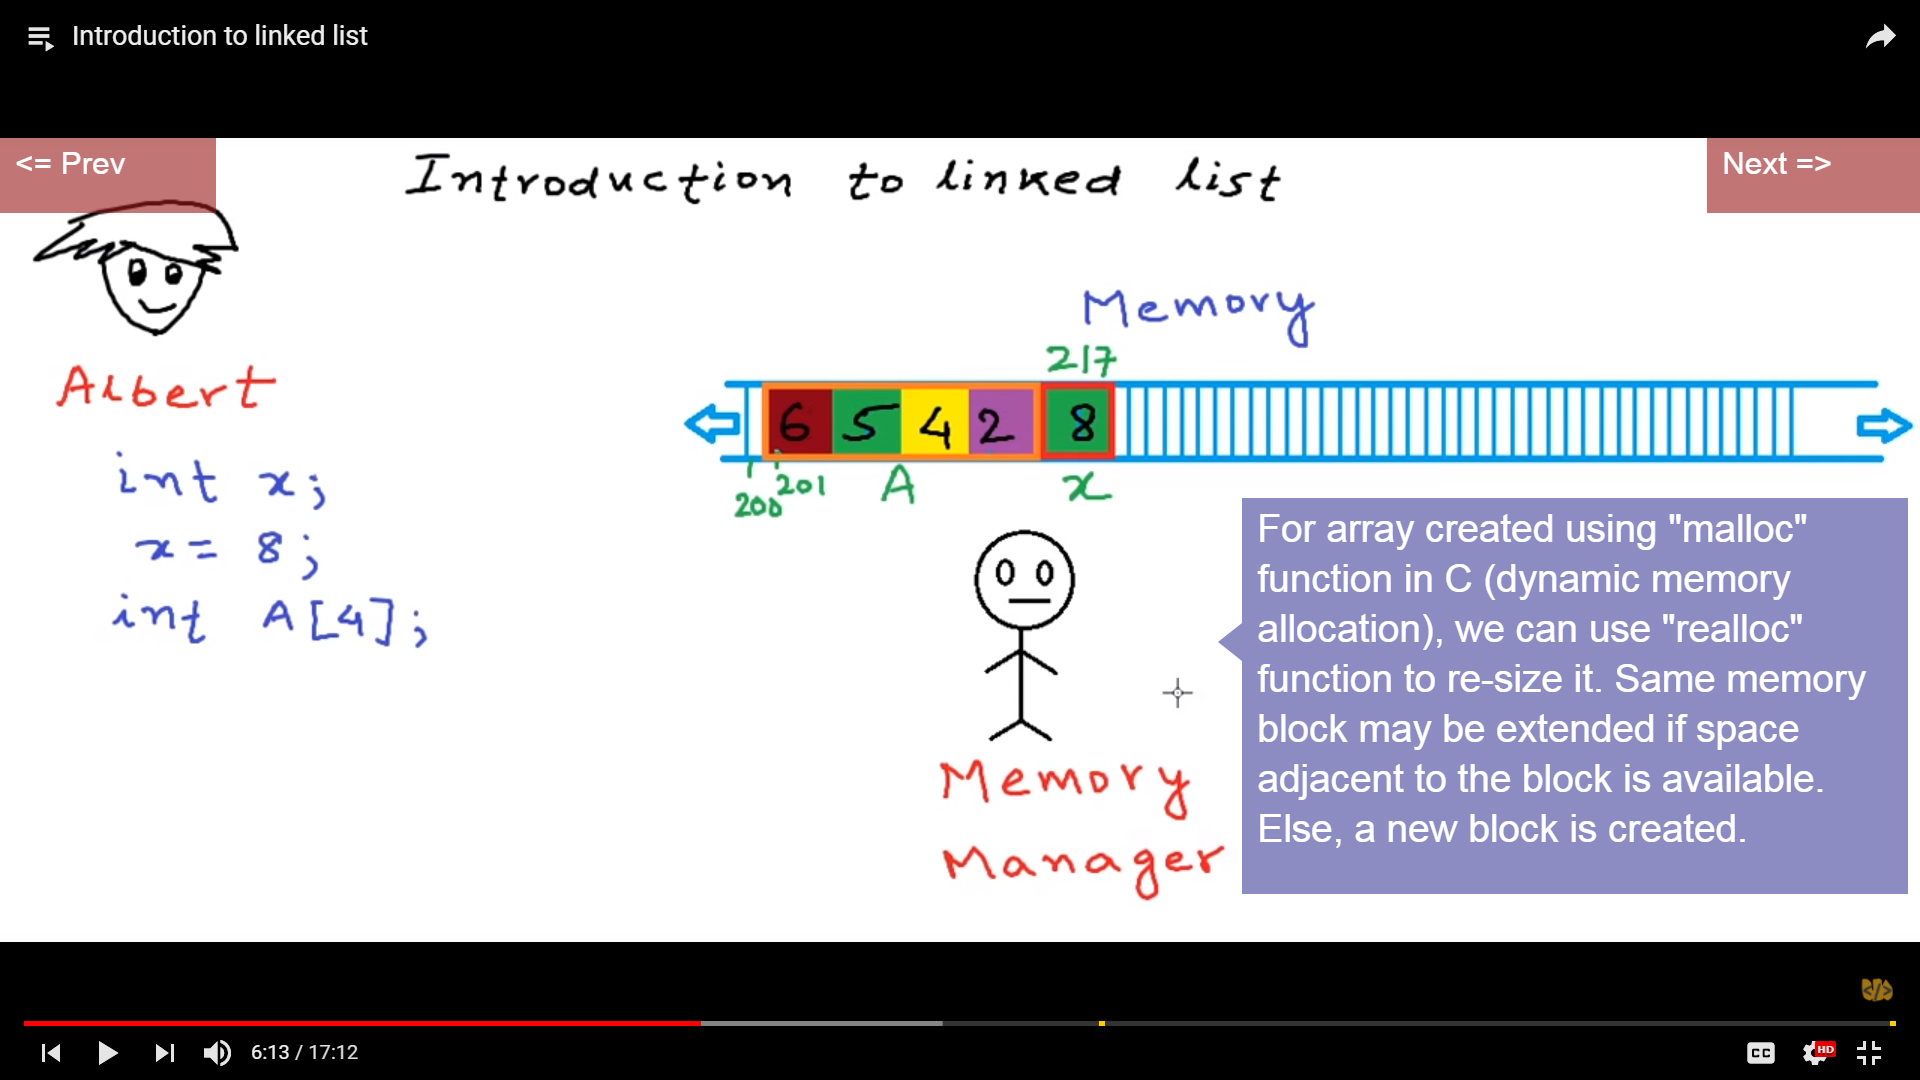 Introduction to linked list
<= Prev
Next =>
Introduction to linked list
Albert
int x;
x = 8;
int A[4];
Memory
217
6 5 4 2 8
200 201 A x
Memory
Manager
For array created using "malloc"
function in C (dynamic memory
allocation), we can use "realloc"
function to re-size it. Same memory
block may be extended if space
adjacent to the block is available.
Else, a new block is created.
</>
6:13 / 17:12
CC
HD